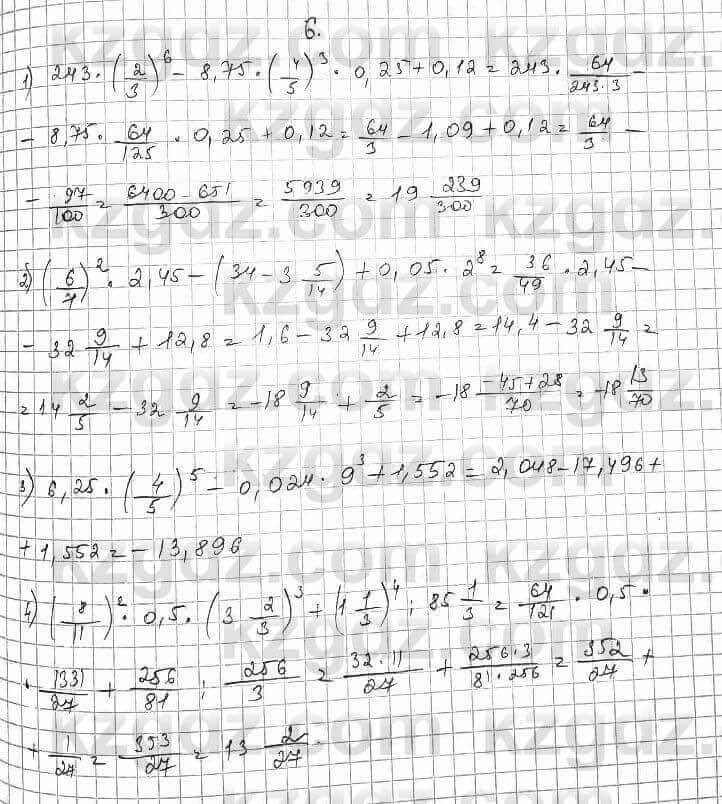 6.
1) 243 · (2/3)^6 - 8,75 · (4/5)^3 · 0,25 + 0,12 = 243 · 64/(243·3) -
- 8,75 · 64/125 · 0,25 + 0,12 = 64/3 - 1,09 + 0,12 = 64/3 -
- 97/100 = (6400 - 651)/300 = 5939/300 = 19 239/300
2) (6/7)^2 · 2,45 - (34 - 3 5/14) + 0,05 · 2^8 = 36/49 · 2,45 -
- 32 9/14 + 12,8 = 1,6 - 32 9/14 + 12,8 = 14,4 - 32 9/14 =
= 14 2/5 - 32 9/14 = -18 9/14 + 2/5 = -18 (-45+28)/70 = -18 13/70
3) 6,25 · (4/5)^5 - 0,024 · 9^3 + 1,552 = 2,048 - 17,496 +
+ 1,552 = -13,896
4) (8/11)^2 · 0,5 · (3 2/3)^3 + (1 1/3)^4 : 85 1/3 = 64/121 · 0,5 ·
· 1331/27 + 256/81 : 256/3 = (32·11)/27 + (256·3)/(81·256) = 352/27 +
+ 1/27 = 353/27 = 13 2/27.
kzgdz.com